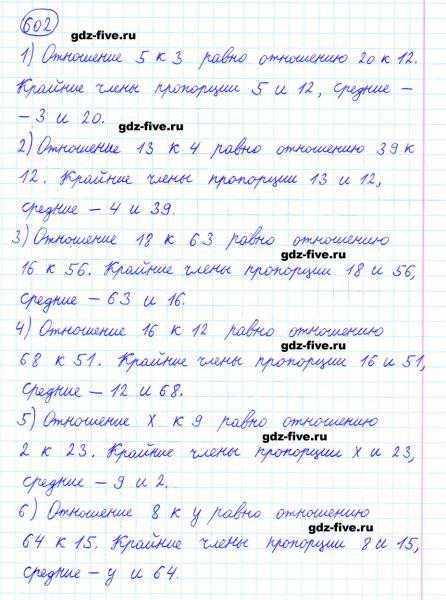 602
gdz-five.ru
1) Отношение 5 к 3 равно отношению 20 к 12.
Крайние члены пропорции 5 и 12, средние –
– 3 и 20.
gdz-five.ru
2) Отношение 13 к 4 равно отношению 39 к
12. Крайние члены пропорции 13 и 12,
средние – 4 и 39.
3) Отношение 18 к 63 равно отношению
gdz-five.ru
16 к 56. Крайние члены пропорции 18 и 56,
средние – 63 и 16.
gdz-five.ru
4) Отношение 16 к 12 равно отношению
gdz-five.ru
68 к 51. Крайние члены пропорции 16 и 51,
средние – 12 и 68.
5) Отношение x к 9 равно отношению
gdz-five.ru
2 к 23. Крайние члены пропорции x и 23,
средние – 9 и 2.
6) Отношение 8 к y равно отношению
gdz-five.ru
64 к 15. Крайние члены пропорции 8 и 15,
средние – y и 64.
gdz-five.ru